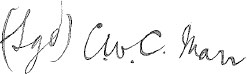 (Sgd) C.W.C. Marr